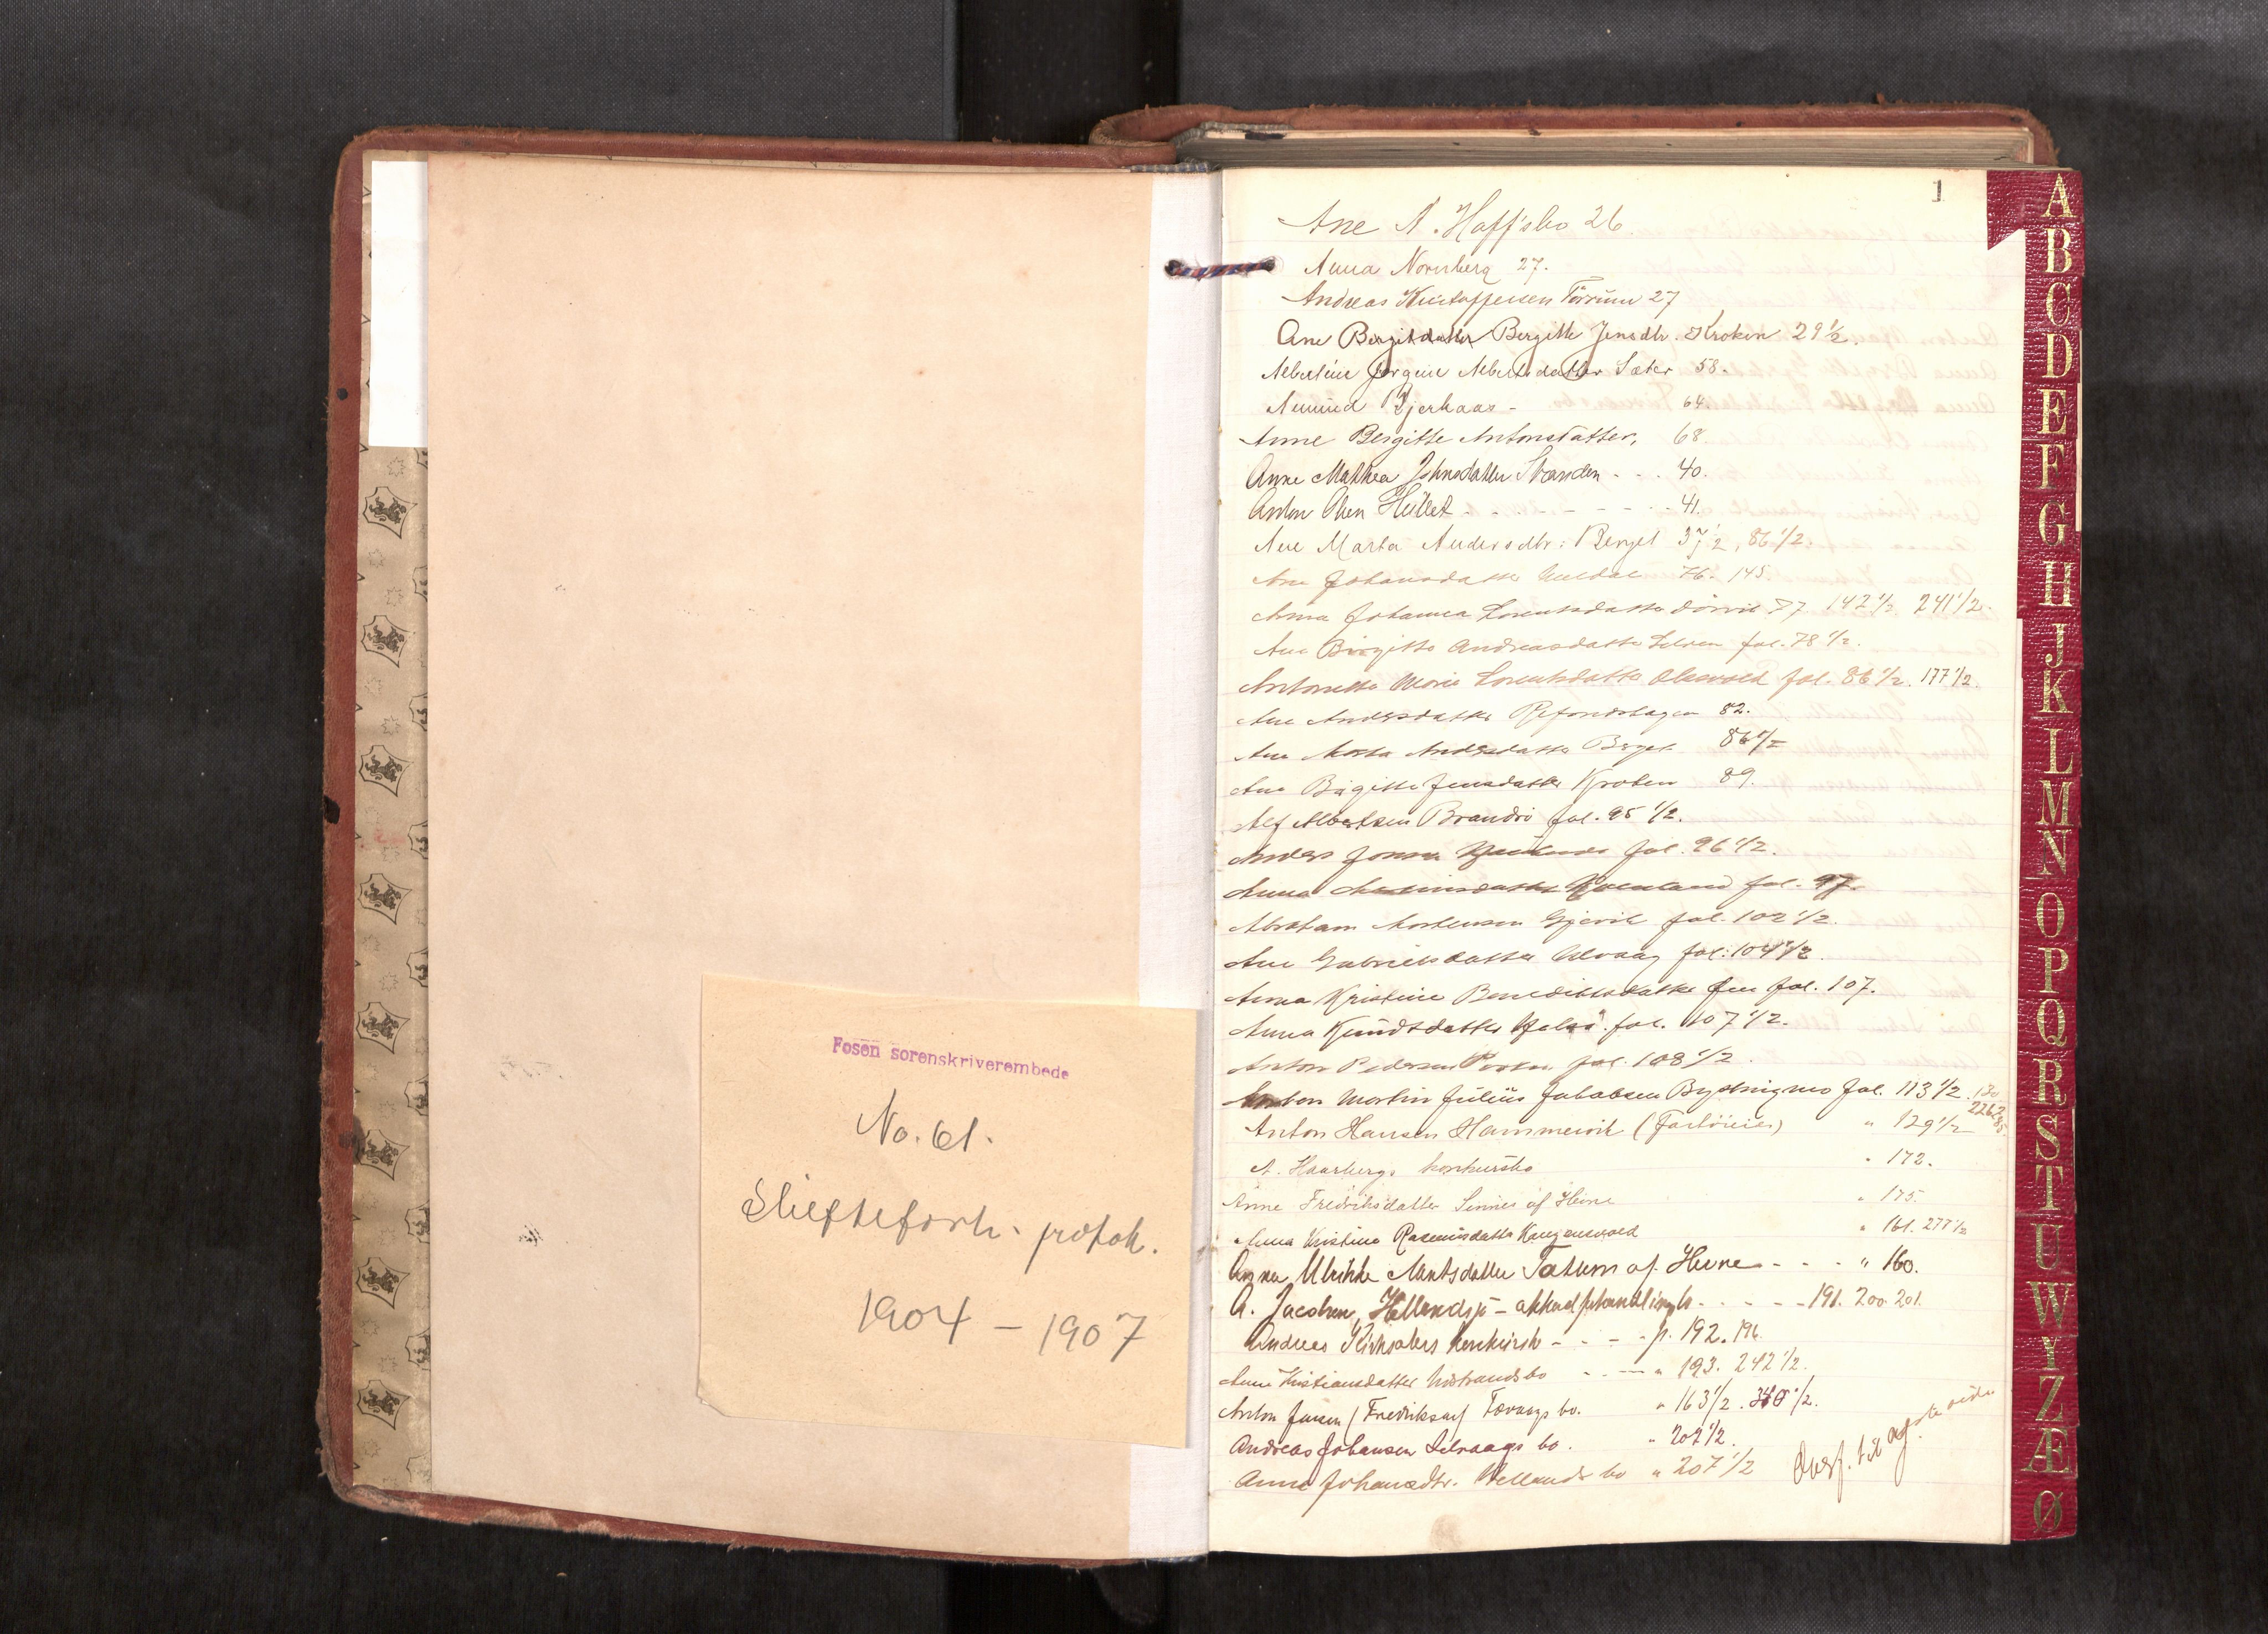 Fosen sorenskriverembede
No. 61.
Skifteforh. protok.
1904 – 1907
1
Ane A. Hoff's bo 26
Anna Nornberg 27.
Andreas Kristoffersen Törrum 27
Ane Bergitte Jensdtr. Kroken 29 1/2.
Albertine Jörgine Albertsdatter Sæter 58.
Amund 64.
Anne Bergitte Antonsdatter, 68
Anne Mathea Johnsdatter Stranden - - . 40.
Anton Olsen Hullet - - - - - - - 41.
Ane Marta Andersdtr: Berget 37 1/2, 86 1/2.
Ane Johansdatter 76. 145.
Anna Johanna Lorentsdatter 77. 142 1/2 241 1/2.
Ane Birgitte Andreasdatter Selven fol. 78 1/2.
Antonette Marie Lorentsdatter fol. 86 1/2. 177 1/2.
Ane Andersdatter 82.
Ane Marta Andersdatter Berget 86 1/2
Ane Birgitte Jensdatter Kroken 89.
Alf Albertsen Brandö fol. 95 1/2.
Anders fol. 96 1/2.
Anna fol. 97.
Abraham Mortensen Gjevik fol. 102 1/2.
Ane Gabrielsdatter Ulvaag fol: 104 1/2.
Anna Kristine Benediktsdatter fol. 107.
Anna Knudsdatter fol. 107 1/2.
Anton Pedersen fol. 108 1/2.
Anton Martin Julius Jakobsen Bystingmo fol. 113 1/2. 130
226 2
85.
Anton Hansen Hammervik ( ) " 129 1/2
A. Haarbergs konkursbo " 172.
Anne Fredriksdatter Sinnes af Hevne " 175.
Anna Kristine Rasmusdatter " 161. 277 1/2
Anna Ulrikke Mentsdatter af Hevne - - - " 160.
A. Jacobsen, Hellandsjö – - - - - - 191. 200. 201.
Andreas Kirksæters konkursbo - - - - p. 192. 196.
Anne Kristiansdatter bo - - - " 193. 242 1/2.
Anton Jensen (Fredriksen) Tærvaags bo. " 163 1/2. 340 1/2.
Andreas Johansen Selvaags bo. " 202 1/2.
Anna Johansdtr. Hellands bo " 207 1/2
Overf. til side
A
B
C
D
E
F
G
H
J
K
L
M
N
O
P
Q
R
S
T
U
W
Y
Z
Æ
Ø